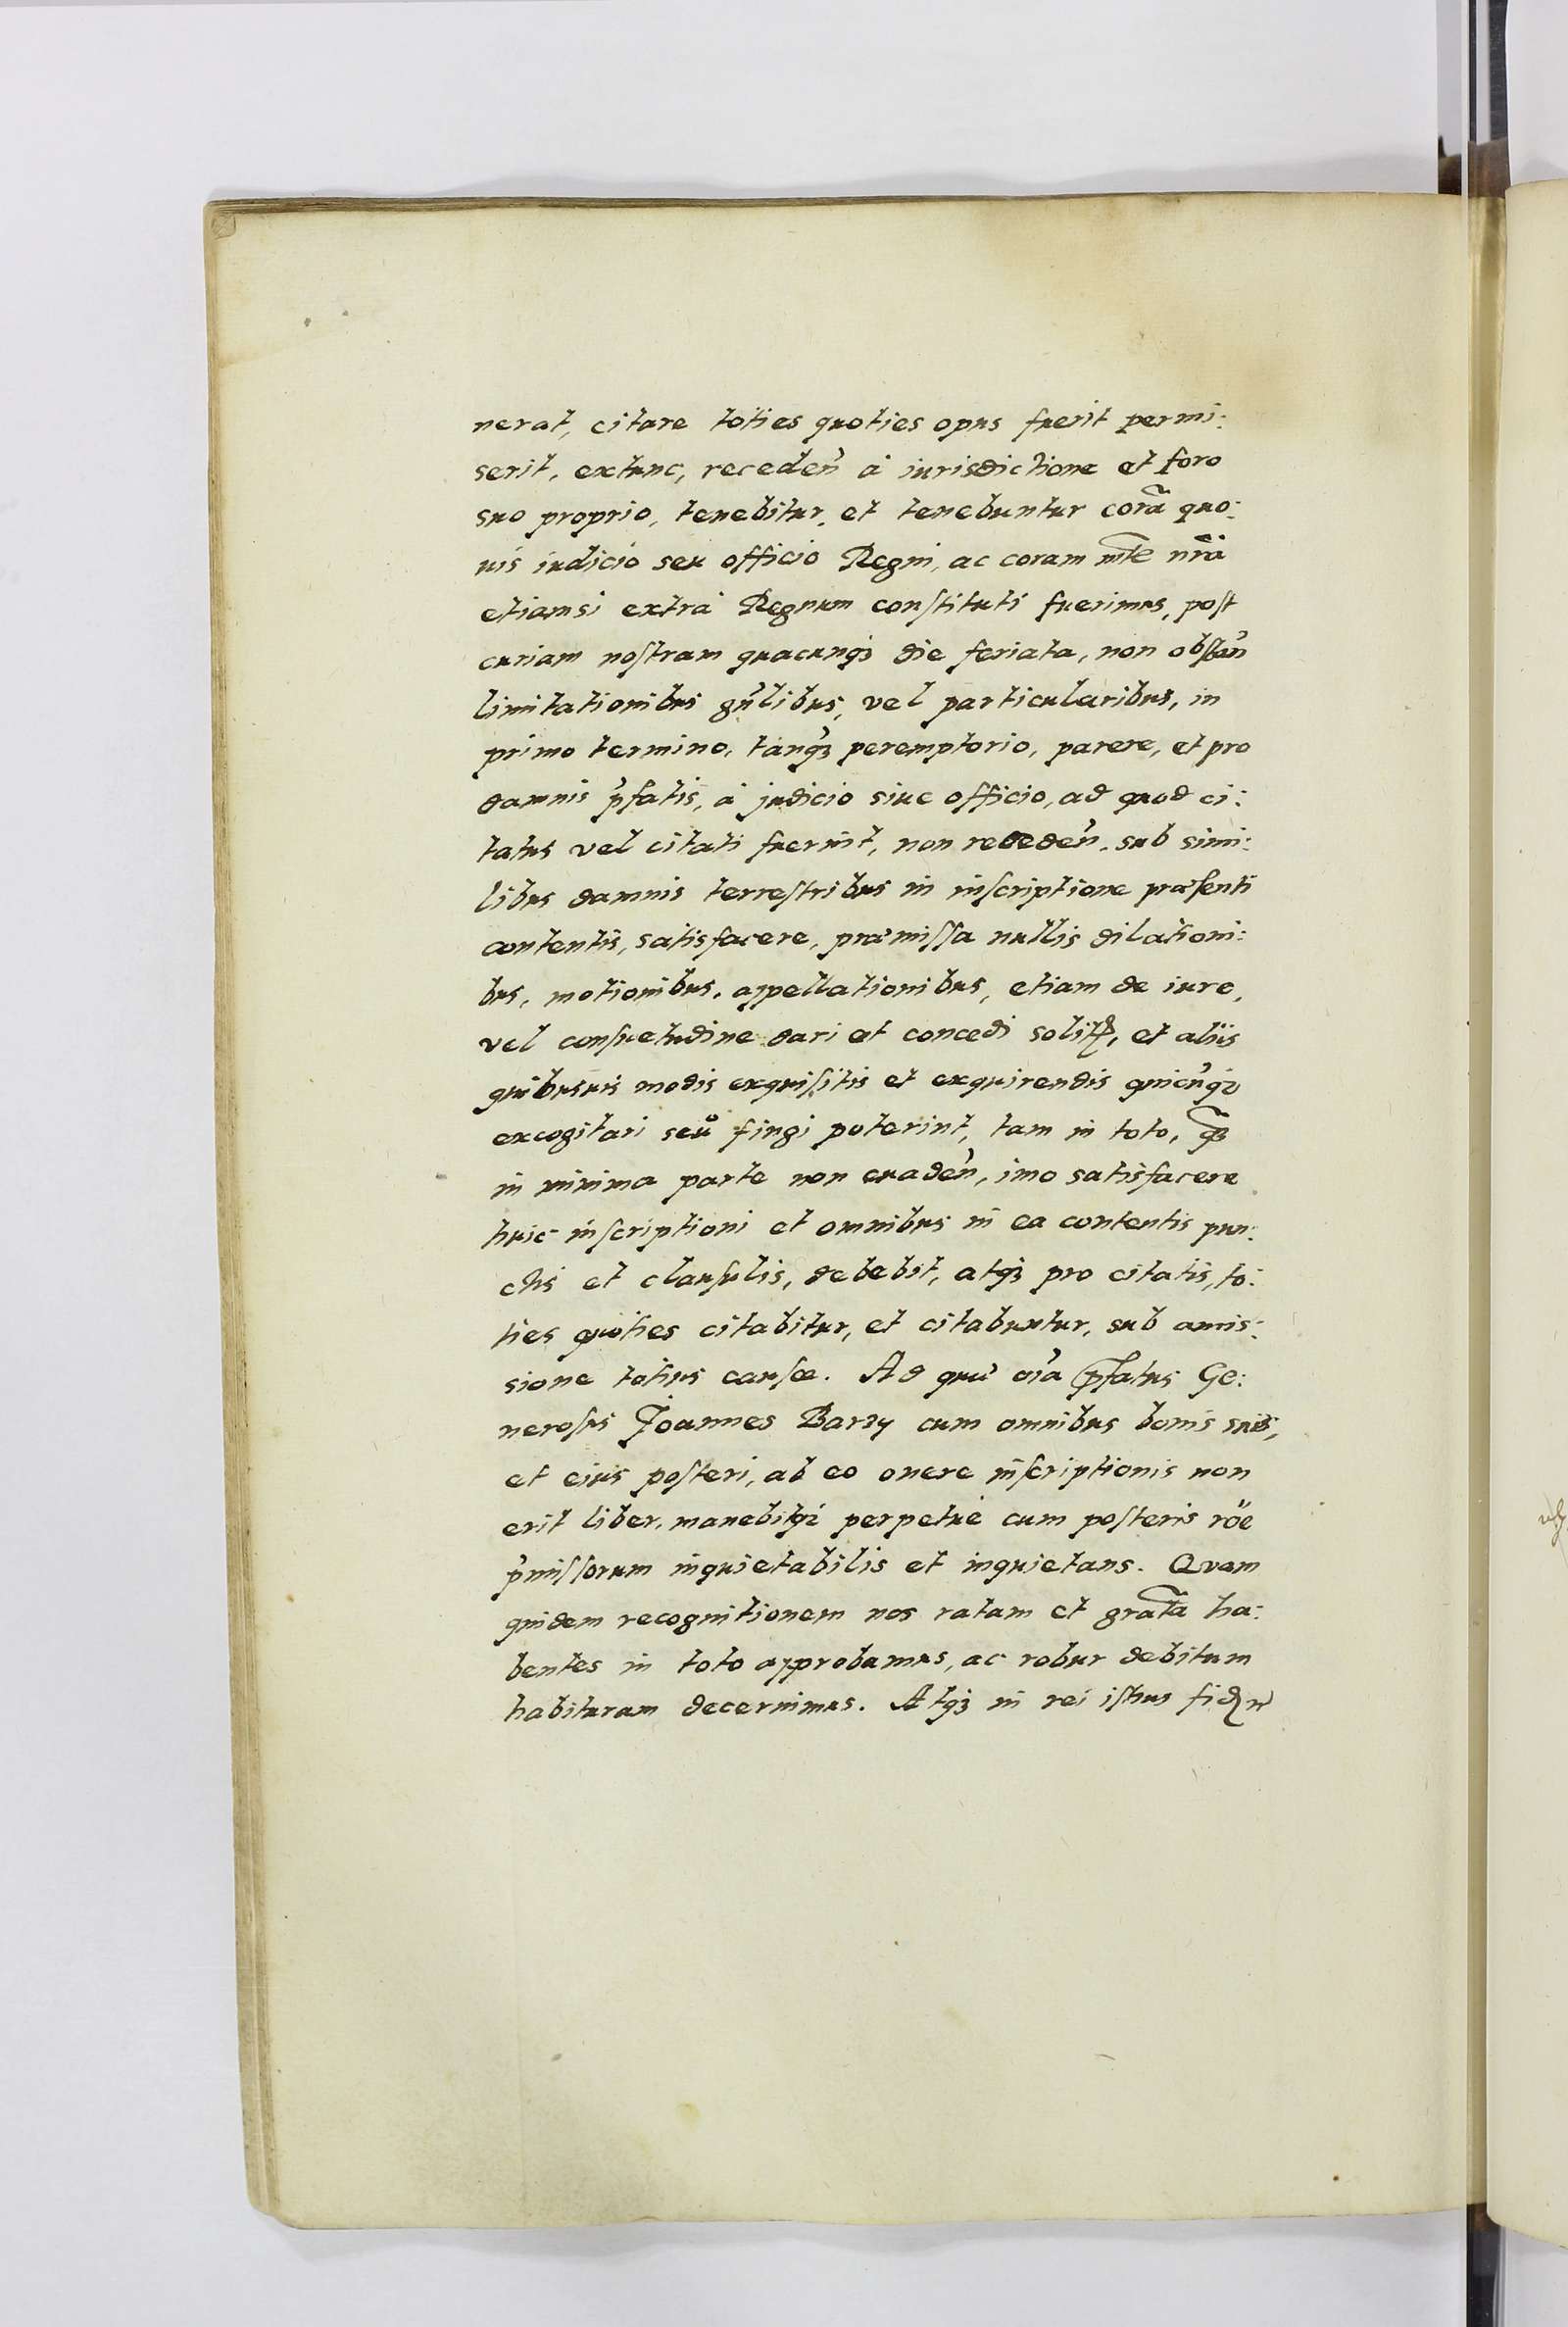 nerat, citare toties quoties opus fuerit permi:
serit, extunc, recedeñ à iurisdictione et foro
suo proprio, tenebitur, et tenebuntur corã quo:
uis iudicio seu officio Regni, ac coram mte nrã
etiamsi extrà Regnum constituti fuerimus, post
curiam nostram quacunqȝ die feriata, non obstañ
limitationibus gñlibus, vel particularibus, in
primo termino, tanqȝ peremptorio, parere, et pro
damnis p̃fatis, à judicio siue officio, ad quod ci:
tatus vel citati fuerint, non recedeñ, sub simi:
libus damnis terrestribus in inscriptione præsenti
contentis, satisfacere, præmissa nullis dilationi:
bus, motionibus, appellationibus, etiam de iure,
vel consuetudine dari et concedi solitꝭ, et aliis
quibusuis modis exquisitis et exquirendis quicũqȝ
excogitari seu fingi poterint, tam in toto, q̃ȝ
in minima parte non euadeñ, imo satisfacere
huic inscriptioni et omnibus in ea contentis pun:
ctis et clausulis, debebit, atqȝ pro citatis, to:
ties quoties citabitur, et citabuntur, sub amis:
sione totius causæ. Ad quæ oĩa p̃fatus Ge:
nerosus Joannes Barzy cum omnibus bonis suis,
et eius posteri, ab eo onere inscriptionis non
erit liber, manebitqȝ perpetuè cum posteris rõe
p̃missorum inquietabilis et inquietans. Quam
quidem recognitionem nos ratam et gratã ha:
bentes in toto approbamus, ac robur debitum
habituram decernimus. Atqȝ in rei istius fidẽ